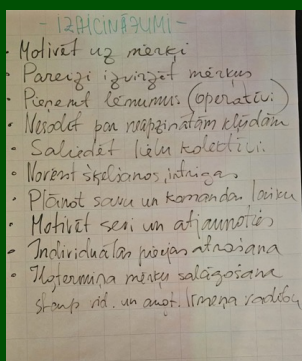 - IZAICINĀJUMI -
• Motivēt uz mērķi
• Pareizi izvirzīt mērķus
• Pieņemt lēmumu. (operatīvi)
• Nesodīt par neapzinātām kļūdām
• Saliedēt lielu kolektīvu.
• Novērst šķelšanos, intrigas
• Plānot savu un komandas laiku
• Motivēt sevi un atjaunoties
• Individuālas pieejas atrašana
• Ilgtermiņa mērķu salāgošana
starp vid. un augst. līmeņa